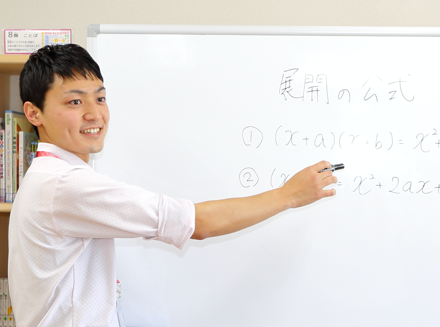 8類 ことば
展開の公式
① (x+a)(x+b)=x²+
② (x = x²+2ax+